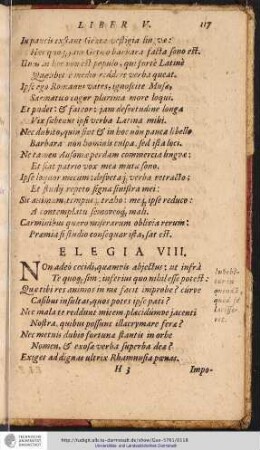 LIBER V. 117
In paucis extant Græcæ vestigia linguæ:
Hæc quoq; jam Getico barbara facta sono est.
Unus in hoc non est populo, qui forte Latine
Quælibet e medio reddere verba queat.
Ipse ego Romanus vates, ignoscite Musæ,
Sarmatico cogor plurima more loqui.
Et pudet: & fateor; jam desuetudine longa
Vix subeunt ipsi verba Latina mihi.
Nec dubito, quin sint & in hoc non pauca libello
Barbara: non hominis culpa, sed ista loci.
Ne tamen Ausoniæ perdam commercia linguæ:
Et fiat patrio vox mea muta sono.
Ipse loquor mecum: desuetaq; verba retracto:
Et studij repeto signa sinistra mei:
Sic animum, tempusq; traho: meq; ipse reduco:
A contemplatu semoveoq; mali.
Carminibus quæro miserarum oblivia rerum:
Præmia si studio consequar ista, sat est.
ELEGIA VIII.
NOn adeò cecidi, quamvis abjectus; ut infrà
Te quoq; sim: inferius quo nihil esse potest.
Quæ tibi res animos in me facit improbe? curve
Casibus insultas, quos potes ipse pati?
Nec mala te reddunt mitem placidumve jacenti
Nostra, quibus possint illacrymare feræ?
Nec metuis dubio fortunæ stantis in orbe
Numen, & exosæ verba superba deæ?
Exiget ad dignas ultrix Rhamnusia pœnas.
H 3 Impo-